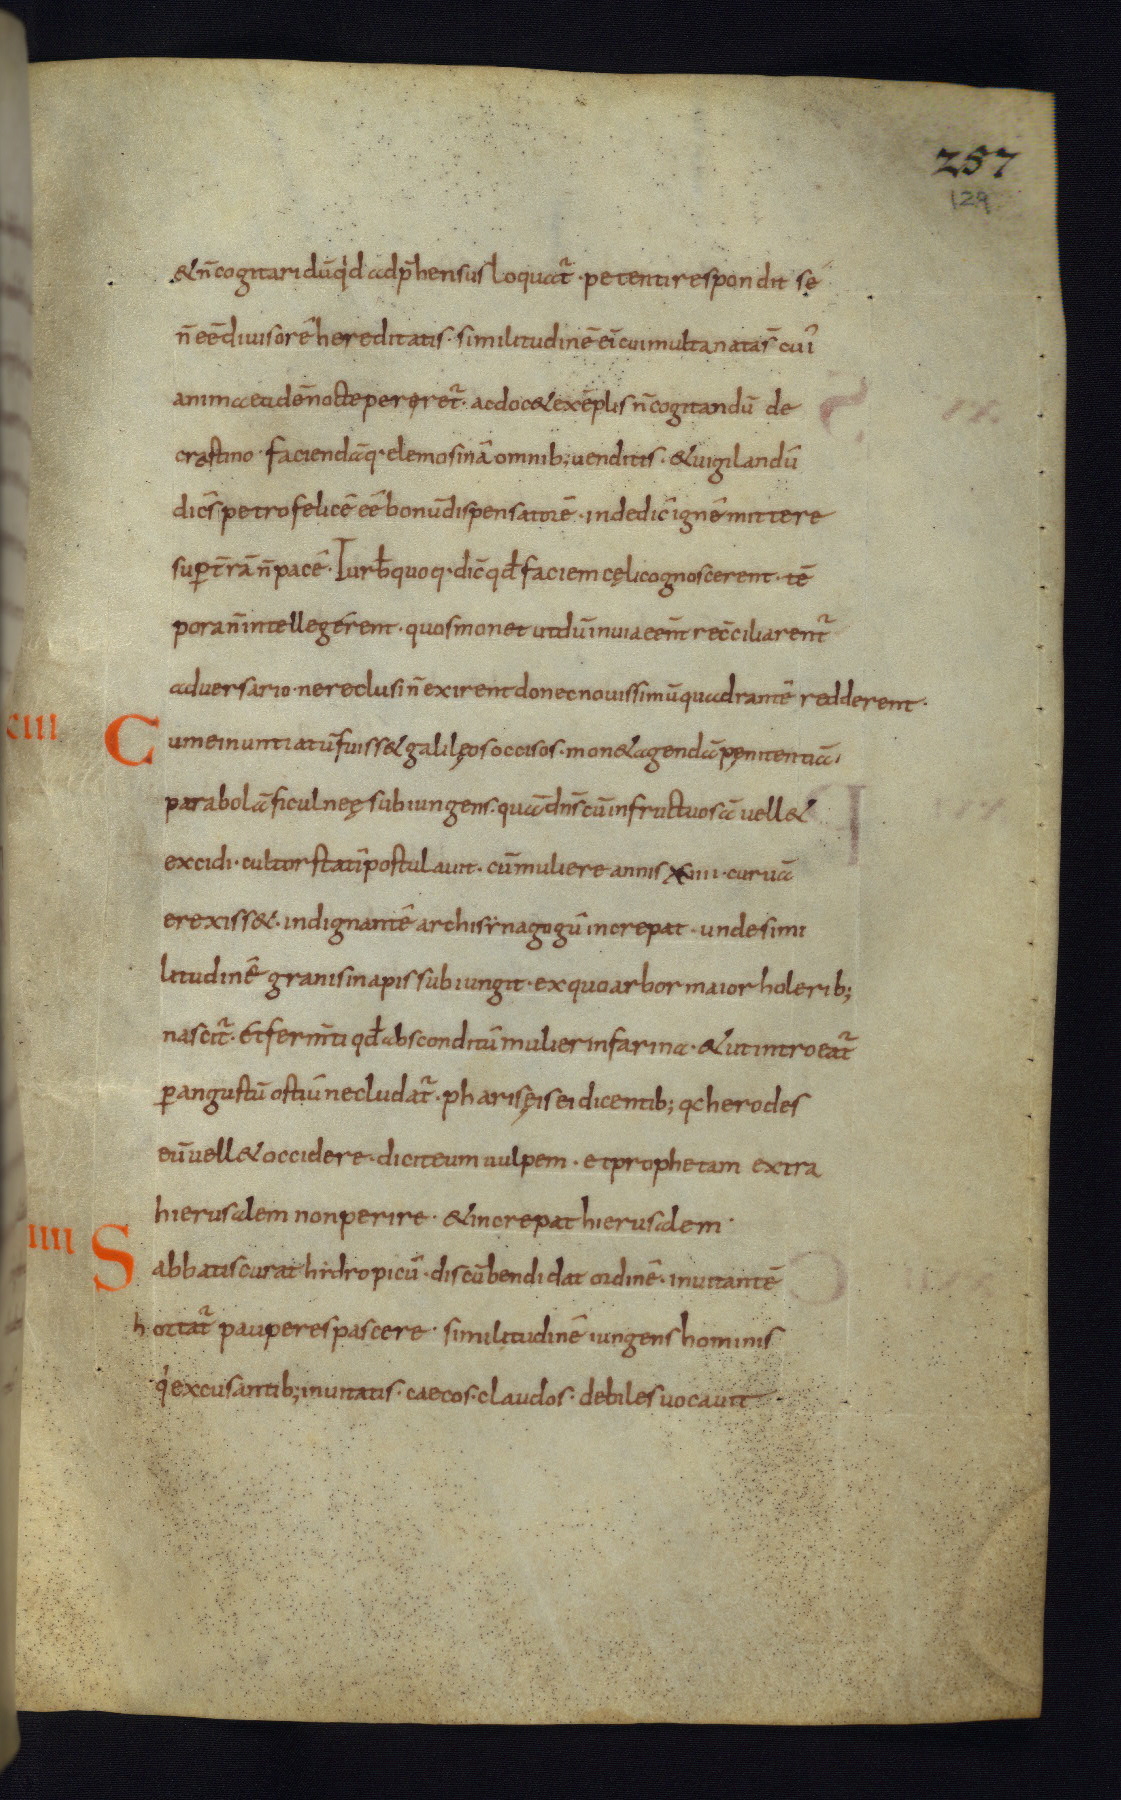 257
129
& n̄ cogitari dū qd adp̄hensus loquat᷑ · petenti respondit sē
n̄ eē divisorē hereditatis · similitudinē ei cui multa nata s̄ cui
anima eadē nocte pereret᷑ · ac doc& exēplis n̄ cogitandū de
crastino · faciendāq · elemosinā omnib; venditis · & vigilandū
dics̄ petro felicē eē bonū dispensatorē · inde dic̄ ignē mittere
sup t̄rā n̄ pacē · Turb quoq · dic̄ qđ faciem cęli cognoscerent · tē
pora n̄ intellegerent · quos monet ut dū in via eēnt recc̄iliarent᷑
adversario · ne reclusi n̄ exirent donec novissimū quadrantē redderent ·
ciii Cum ei nuntiatū fuiss& galilęos occisos · mon& agendā pęnitentiā ·
parabolā ficulneę subiungens · quā dn̄s cū infructuosā vell&
excidi · cultor statī postulavit · cū muliere annis xviii · curvā
erexiss& · indignantē archisynagogū increpat · unde simi
litudinē grani sinapis subiungit · ex quo arbor maior holerib;
nascit᷑ · Et fermn̄ti qđ absconditū mulier in farina · & ut introeat᷑
p angustū ostiū ne cludat᷑ · pharisęis ei dicentib; qc herodes
eū vell& occidere · dicit eum vulpem · et prophetam extra
hierusalem non perire · & increpat hierusalem ·
iiii Sabbatis curat hidropicū · discūbendi dat ordinē · invitantē
hortat᷑ pauperes pascere · similitudinē iungens hominis
q excusantib; invitatis · caecos · claudos · debiles vocavit